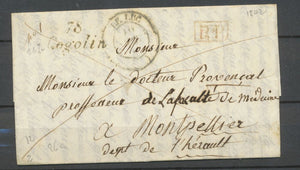 78
Cogolin
LE LUC
P.P.
1842
Monsieur
Monsieur le docteur Provençal
professeur de la faculté de médecine
a Montpellier
dept de l'hérault